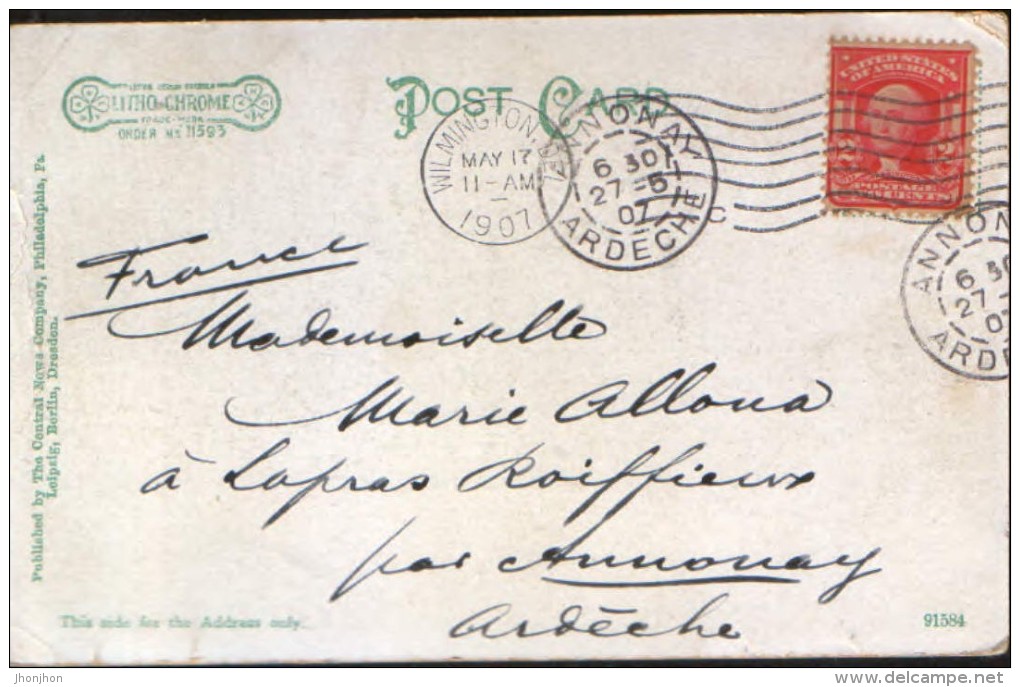 POST CARD
LITHO-CHROME
TRADE-MARK
ORDER No 11593
UNITED STATES
OF AMERICA
POSTAGE
WILMINGTON, DEL
MAY 17
11-AM
1907
ANNONAY
6 30
27 -5
07
ARDECHE
C
ANNON
6 30
27
0
ARDE
France
Mademoiselle
Marie Alloua
à Lapras Roiffieux
par Annonay
Ardèche
Published by The Central News Company, Philadelphia, Pa.
Leipzig, Berlin, Dresden.
This side for the Address only.
91584
jhonjhon
delcampe.net